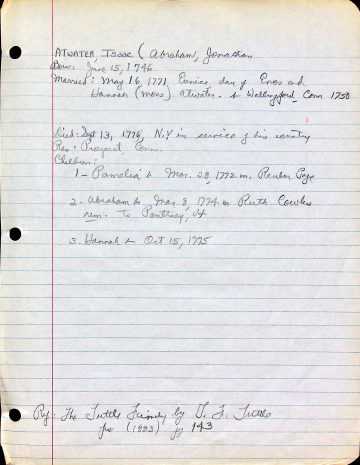 ATWATER, Isaac (Abraham, Jonathan
Born: June 15, 1746
Married: May 16, 1771 Eunice dau of Enos and
Hannah (Moss) Atwater. b Wallingford, Conn 1750
Died: Sept 13, 1776, N.Y in service of his country
Res: Prospect, Conn.
Children:
1 - Pamelia b Mar. 28, 1772 m. Reuben Page
2. Abraham b Mar 8, 1774 m Ruth Cowles
rem. To Poultney, Vt
3. Hannah b Oct 15, 1775
Ref: The Tuttle Family by G. F. Tuttle
(1883) pg 143